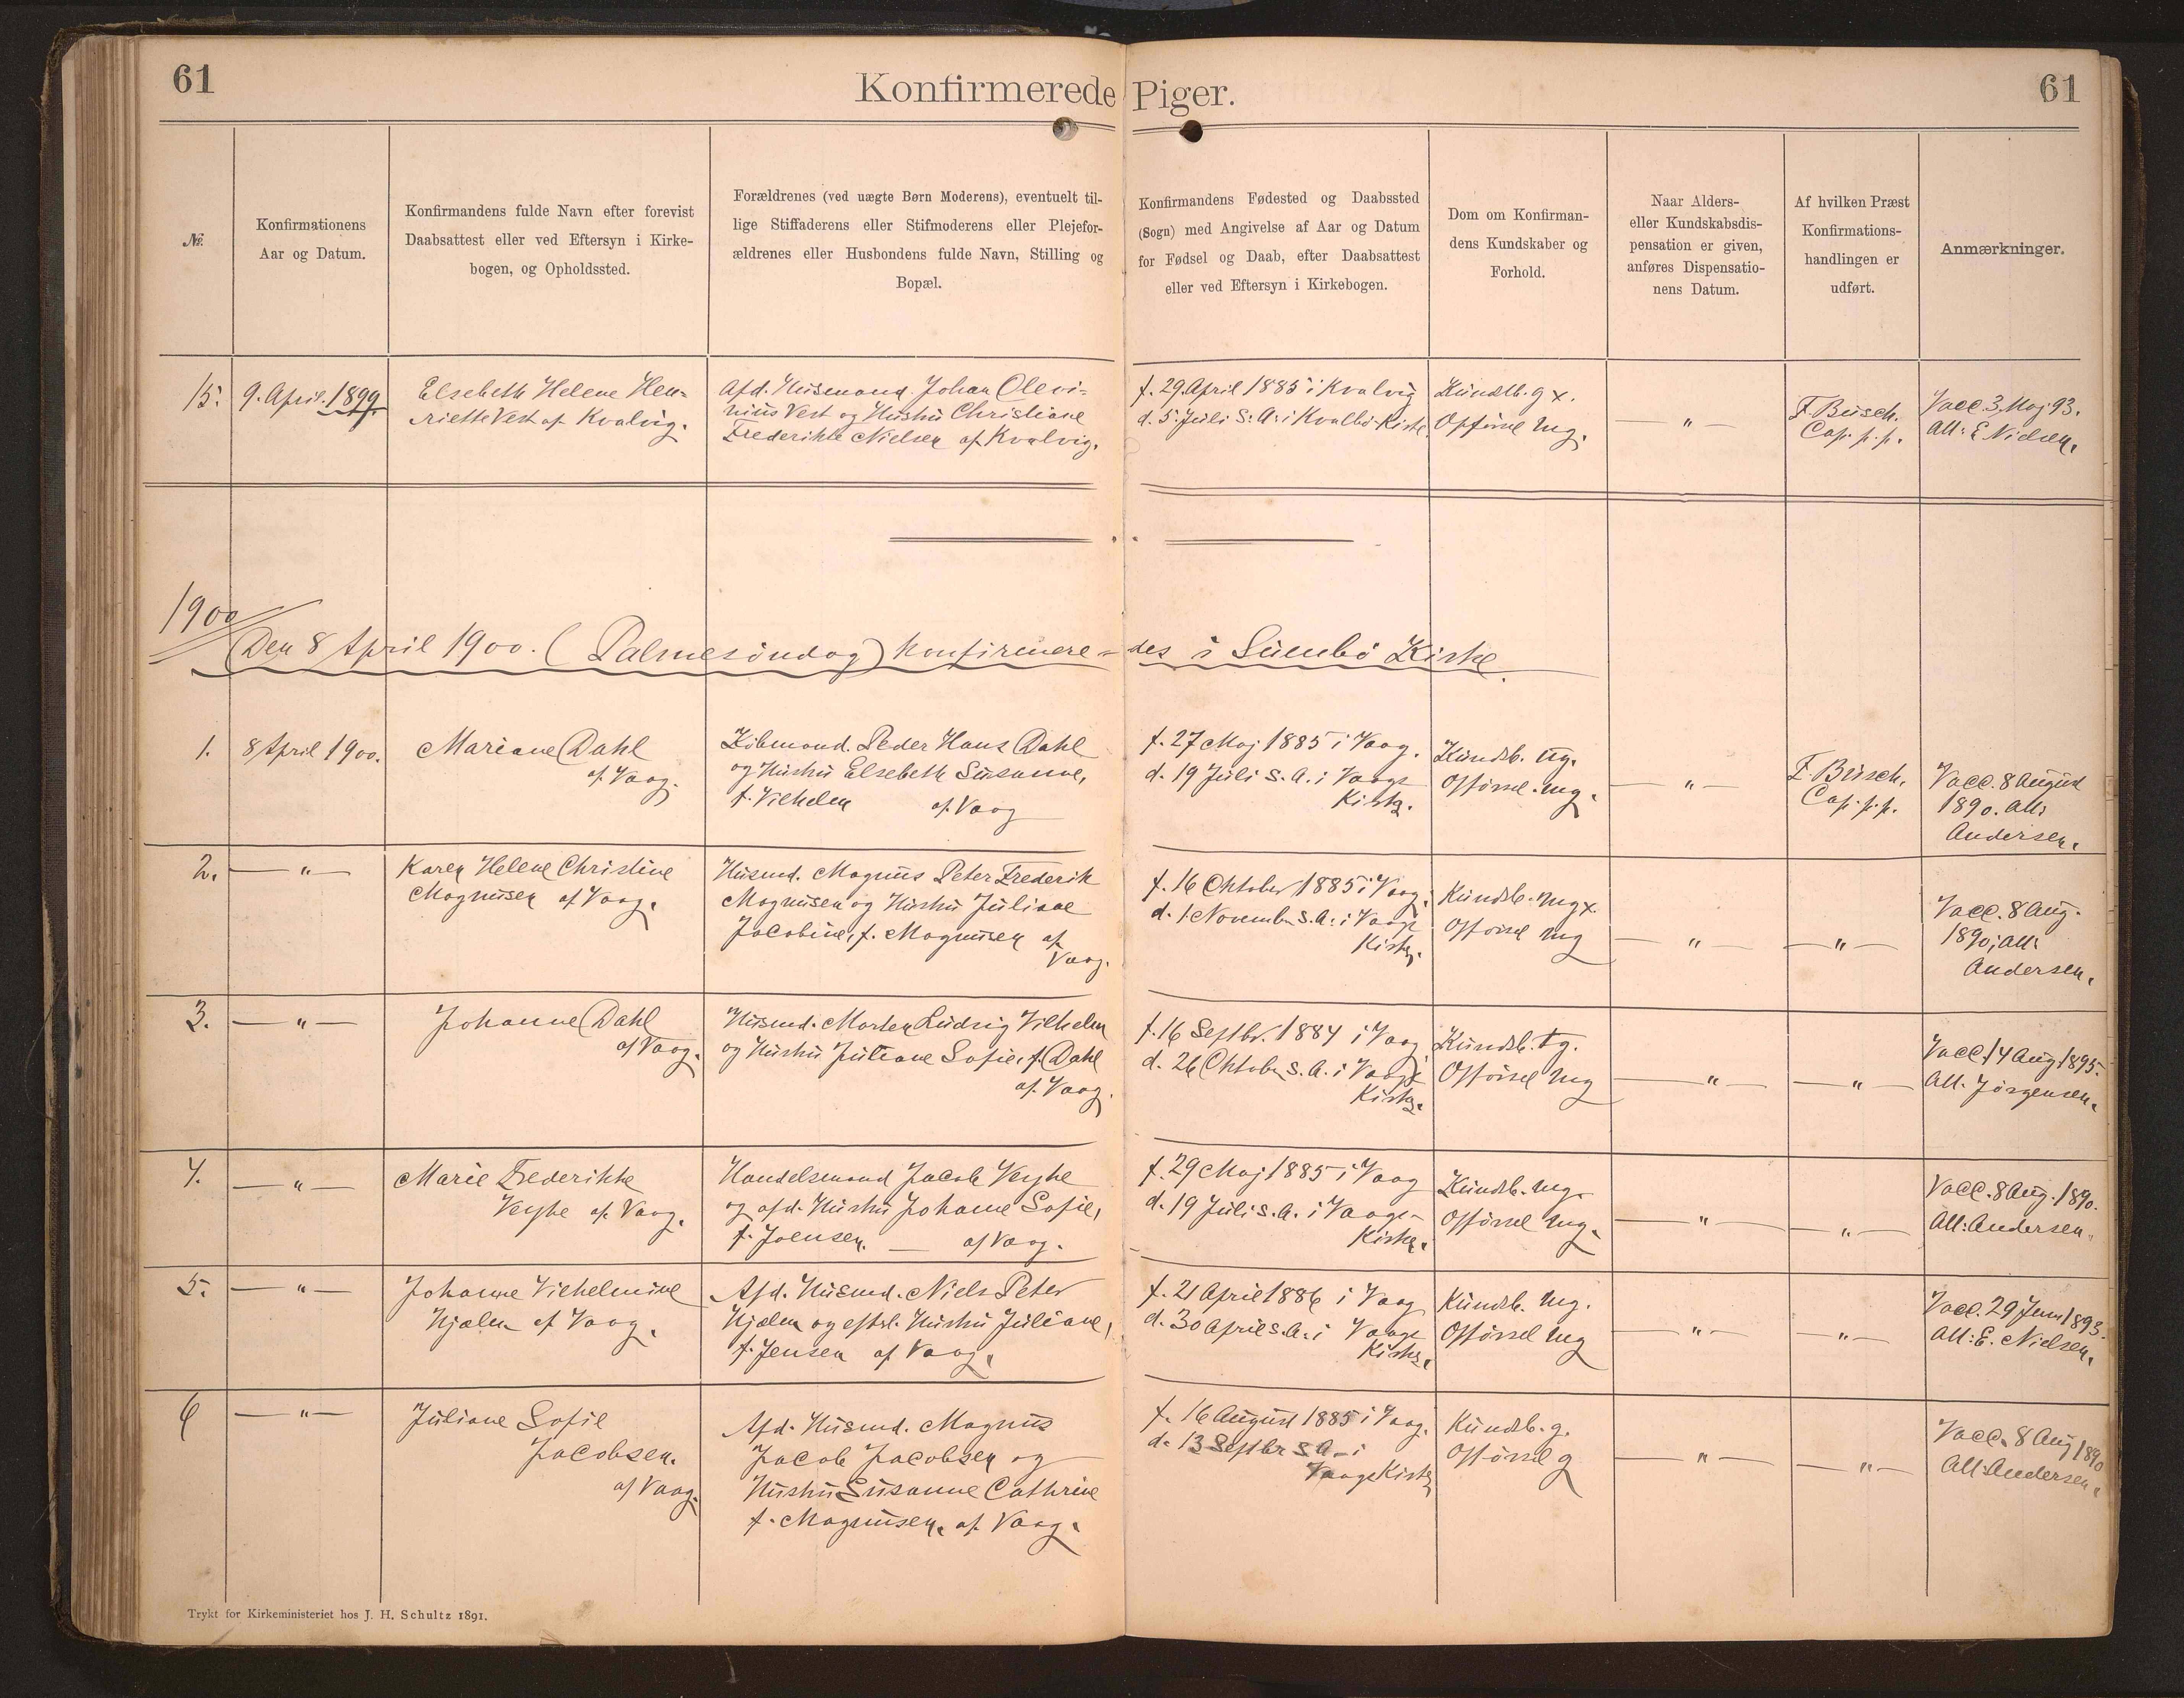 61
Konfirmerede Piger.
61
No.
Konfirmationens
Aar og Datum.
Konfirmandens fulde Navn efter forevist
Daabsattest eller ved Eftersyn i Kirke-
bogen, og Opholdssted.
Forældrenes (ved uægte Børn Moderens), eventuelt til-
lige Stiffaderens eller Stifmoderens eller Plejefor-
ældrenes eller Husbondens fulde Navn, Stilling og
Bopæl.
Konfirmandens Fødested og Daabssted
(Sogn) med Angivelse af Aar og Datum
for Fødsel og Daab, efter Daabsattest
eller ved Eftersyn i Kirkebogen.
Dom om Konfirman-
dens Kundskaber og
Forhold.
Naar Alders-
eller Kundskabsdis-
pensation er given,
anføres Dispensatio-
nens Datum.
Af hvilken Præst
Konfirmations-
handlingen er
udført.
Anmærkninger.
15.
9. April. 1899.
Elsebeth Helene Hen-
riette Vest af Kvalvig.
Afd. Husmand Johan Olevi-
nius Vest og Hustru Christiane
Frederikke Nielsen af Kvalvig.
f. 29. April 1885 i Kvalvig
d. 5. Juli s. A. i Kvalbø Kirke.
Kundsk. g x.
Opførsel mg.
— " —
F. Busch.
Cap. p. p.
Vacc. 3. Maj 93.
Att: E Nielsen.
1900
Den 8 April 1900. (Palmesøndag) konfirmere-des i Sumbø Kirke.
1.
8 April 1900.
Mariane Dahl
af Vaag.
Købmand. Peder Hans Dahl
og Hustru Elsebeth Susanne,
f. Vilhelm af Vaag
f. 27 Maj 1885 i Vaag.
d. 19 Juli s. A. i Vaags
Kirke.
Kundsk. ug.
Opførsel. mg.
— " —
F. Busch.
Cap. p. p.
Vacc. 8 August
1890. Att:
Andersen.
2.
— " —
Karen Helene Christine
Magnusen af Vaag.
Husmd. Magnus Peter Frederik
Magnusen og Hustru Juliane
Jacobine, f. Magnusen af
Vaag.
f. 16 Oktober 1885 i Vaag.
d. 1. November s. A. i Vaags
Kirke.
Kundsk. mg x.
Opførsel mg
— " —
— " —
Vacc. 8 Aug.
1890; Att:
Andersen.
3.
— " —
Johanne Dahl
af Vaag.
Husmd. Morten Ludvig Vilhelm
og Hustru Juliane Sofie, f. Dahl
af. Vaag.
f. 16 Septbr. 1884 i Vaag
d. 26 Oktober s. A. i Vaags
Kirke.
Kundsk. tg.
Opførsel mg
— " —
— " —
Vacc. 14 Aug 1895.
Att. Jørgensen.
4.
— " —
Marie Frederikke
Veyhe af. Vaag.
Handelsmand Jacob Veyhe
og afd. Hustru Johanne Sofie,
f. Joensen. — af Vaag.
f. 29 Maj 1885 i Vaag
d. 19 Juli s. A. i Vaags
Kirke.
Kundsk. mg.
Opførsel mg.
— " —
— " —
Vacc. 8 Aug. 1890.
Att: Andersen.
5.
— " —
Johanne Vilhelmine
Hjælm af Vaag.
Afd. Husmd. Niels Peter
Hjælm og eftrl. Hustru Juliane,
f. Jensen af Vaag.
f. 21 April 1886 i Vaag
d. 30 April s. A. i Vaags
Kirke.
Kundsk. mg.
Opførsel mg
— " —
— " —
Vacc. 29 Juni 1893.
Att: E. Nielsen.
6
— " —
Juliane Sofie
Jacobsen.
af Vaag.
Afd. Husmd. Magnus
Jacob Jacobsen og
Hustru Susanne Cathrine
f. Magnusen. af. Vaag.
f. 16 August 1885 i Vaag.
d. 13 Septbr s A. i
Vaags Kirke
Kundsk. g.
Opførsel g
— " —
— " —
Vacc. 8 Aug 1890
Att: Andersen.
Trykt for Kirkeministeriet hos J. H. Schultz 1891.